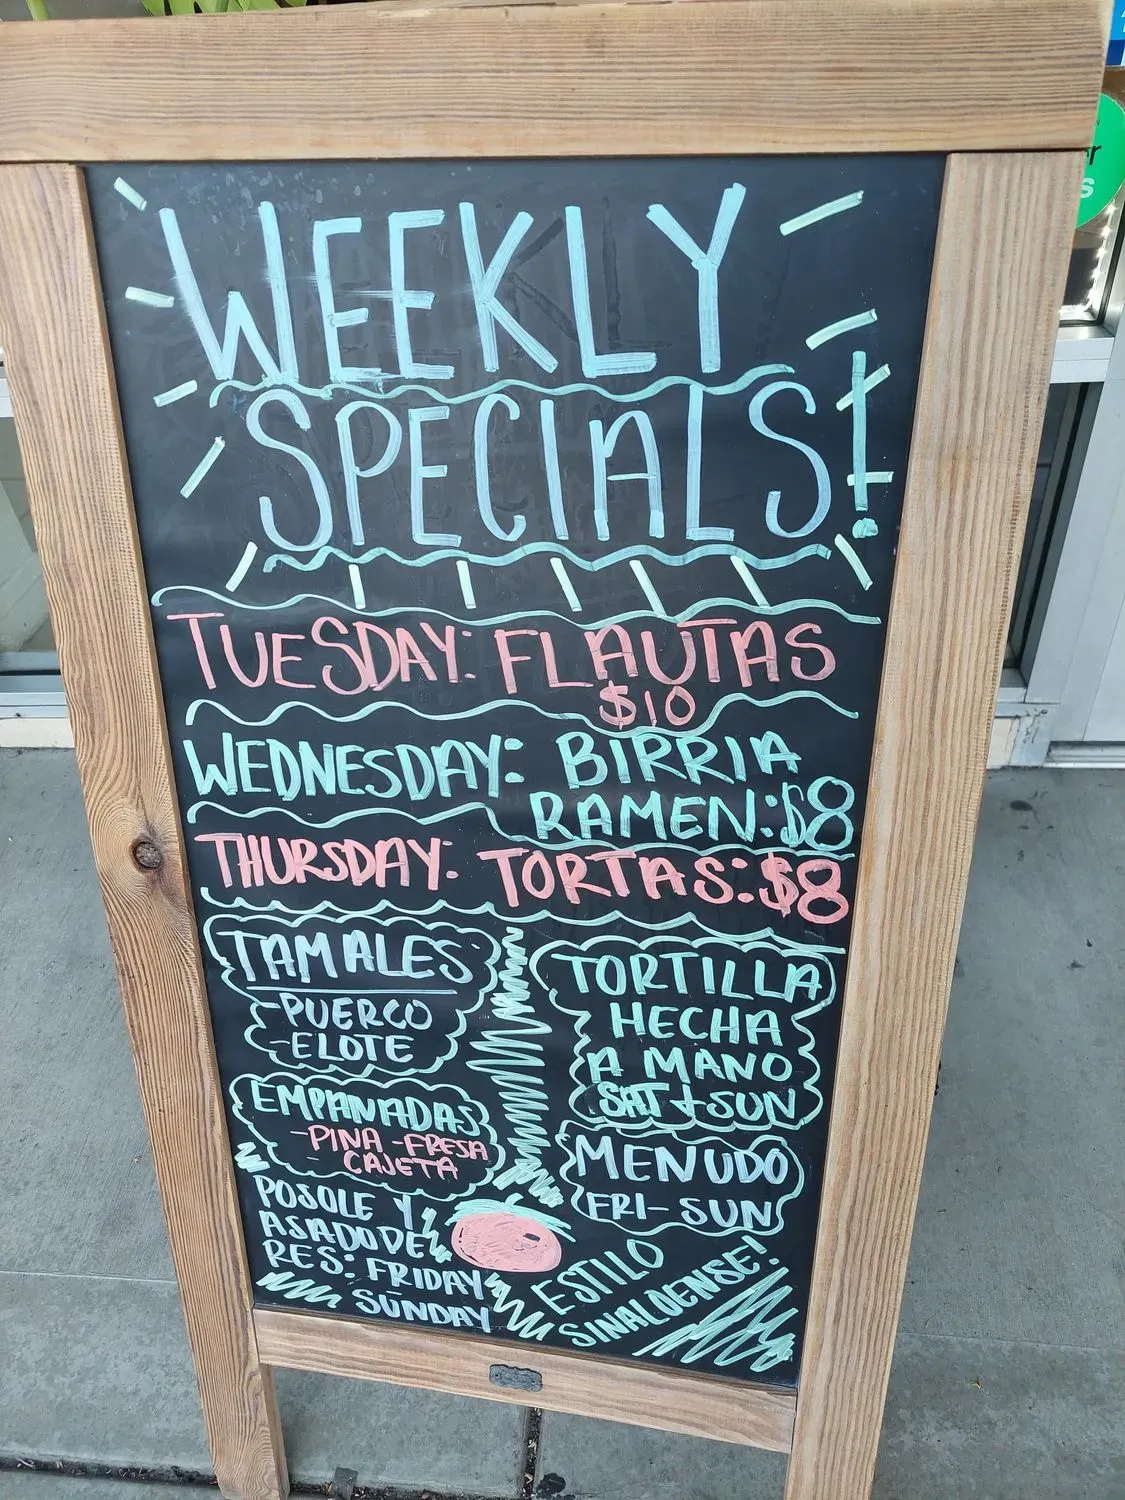 WEEKLY
SPECIALS!
TUESDAY: FLAUTAS
$10
WEDNESDAY: BIRRIA
RAMEN: $8
THURSDAY: TORTAS: $8
TAMALES
-PUERCO
-ELOTE
TORTILLA
HECHA
A MANO
SAT + SUN
EMPANADAS
-PINA -FRESA
- CAJETA
MENUDO
FRI- SUN
POSOLE Y
ASADO DE
RES: FRIDAY
- SUNDAY
ESTILO
SINALOENSE!
r
s